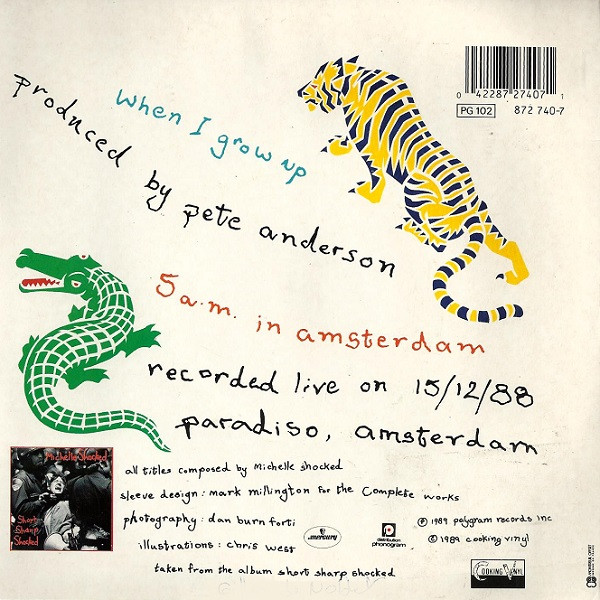 0 42287 27407 1
PG 102 872 740-7
when I grow up
produced by pete anderson
5 a.m. in amsterdam
recorded live on 15/12/88
paradiso, amsterdam
Michelle Shocked
Short
Sharp
Shocked
all titles composed by Michelle shocked
sleeve design: mark millington for the Complete works
photography: dan burn forti
illustrations: chris west
taken from the album short sharp shocked
mercury
distribution
phonogram
℗ 1989 polygram records inc
© 1989 cooking vinyl
COOKING VINYL